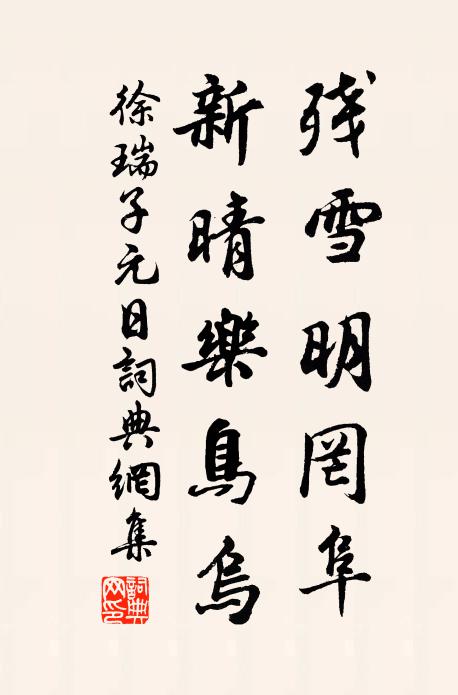 残雪明罔阜
新晴樂鳥烏
徐瑞子元日詞典網集
詞典网印